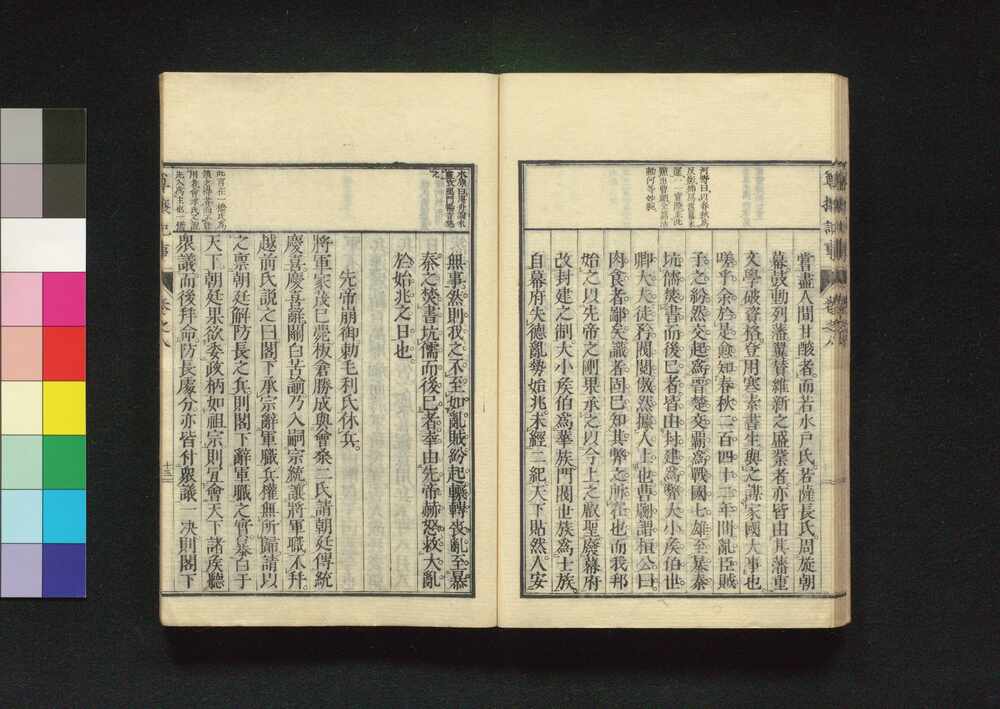 嘗盡人間甘酸者而若水戶氏若薩長氏周旋朝
幕鼓動列藩翼贊維新之盛業者亦皆由其藩重
文學破資格登用寒素書生與之謀家國大事也
嗟乎余於是愈知春秋二百四十二年間亂臣賊
子之紛然交起爲晉楚交霸爲戰國七雄至暴秦
坑儒焚書而後已者皆由封建爲弊大小矦伯世
卿大夫徒矜閥閱傲然據人上也曹劌謂桓公曰
肉食者鄙矣識者固已知其弊之所在也而我邦
始之以先帝之剛果承之以今上之叡聖廢幕府
改封建之制大小矦伯爲華族門閥世族爲士族
自幕府失德亂勢始兆未經二紀天下貼然人安
無事然則我之不至如亂賊紛起輾轉喪亂至暴
秦之焚書坑儒而後已者幸由先帝赫怒救大亂
於始兆之日也
先帝崩御勅毛利氏休兵
將軍家茂已薨板倉勝成與會桑二氏請朝廷傳統
慶喜慶喜辭關白苦諭乃入嗣宗統讓將軍職不拜
越前氏說之曰閣下承宗辭軍職兵權無所歸請以
之稟朝廷解防長之兵則閣下辭軍職之實暴白于
天下朝廷果欲委政柄如祖宗則宜會天下諸矦聽
衆議而後拜命防長處分亦皆付衆議一決則閣下
卷之八
十三